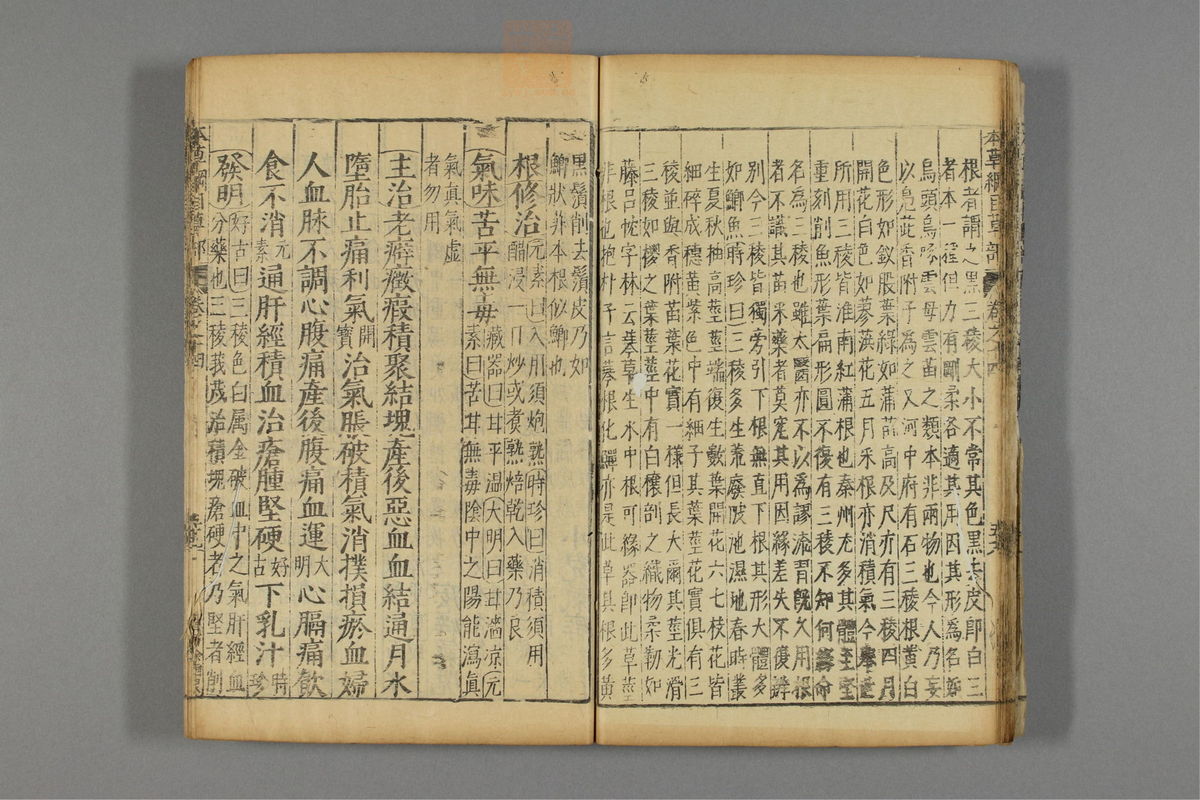 本草綱目草部 卷之十四
根者謂之黑三稜大小不常其色黑去皮卽白三
者本一徑但力有剛柔各適其用因其形爲名如
烏頭烏喙雲母雲苗之類本非兩物也今人乃妄
以鳧茈香附子爲之又河中府有石三稜根黃白
色形如釵股葉綠如蒲苗高及尺亦有三稜四月
開花白色如蓼葓花五月采根亦消積氣今舉世
所用三稜皆淮南紅蒲根也秦州尤多其體至堅
重刻削魚形葉扁形圓不復有三稜不知何緣命
名爲三稜也雖太醫亦不以爲謬流習旣久用根
者不識其苗采藥者莫究其用因緣差失不復辨
別今三稜皆獨旁引下根無直下根其形大體多
如鯽魚時珍曰三稜多生荒廢陂池濕地春時叢
生夏秋抽高莖莖端復生數葉開花六七枝花皆
細碎成穗黃紫色中有細子其葉莖花實俱有三
稜並與香附苗葉花實一樣但長大爾其莖光滑
三稜如椶之葉莖莖中有白穰剖之織物柔韌如
藤呂忱字林云䔖草生水中根可緣器卽此草莖
非根也抱朴子言䔖根化鱓亦是此草其根多黃
黑鬚削去鬚皮乃如
鯽狀非本根似鯽也
根修治元素曰入用須炮熟時珍曰消積須用
醋浸一日炒或煮熟焙乾入藥乃良
氣味苦平無毒藏器曰甘平温大明曰甘濇凉元
素曰苦甘無毒陰中之陽能瀉眞
氣眞氣虛
者勿用
主治老癖癥瘕積聚結塊產後惡血血結通月水
墮胎止痛利氣開寶治氣脹破積氣消撲損瘀血婦
人血脉不調心腹痛產後腹痛血運大明心膈痛飲
食不消元素通肝經積血治瘡腫堅硬好古下乳汁時珍
發明好古曰三稜色白属金破血中之氣肝經血
分藥也三稜莪茂治積塊瘡硬者乃堅者削
本草綱目草部 卷之十四